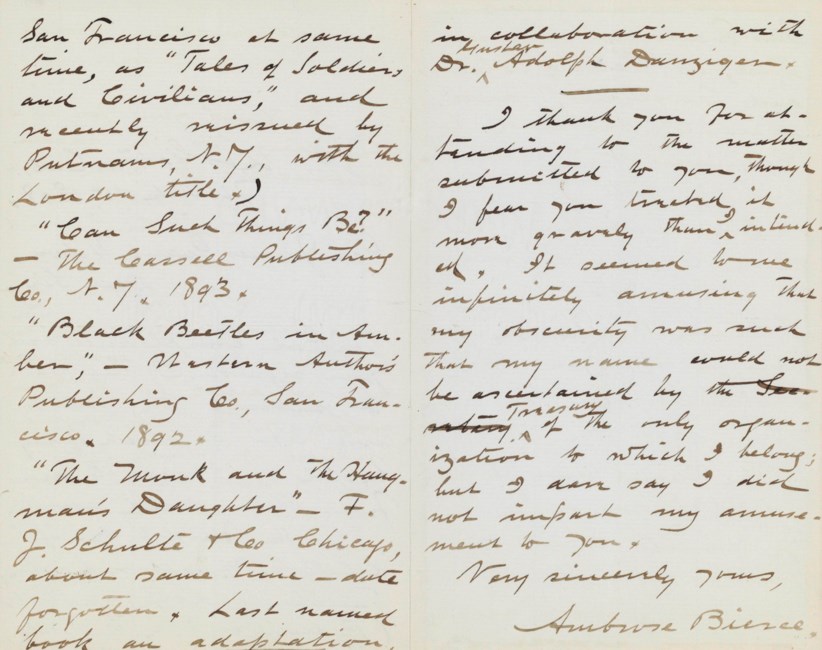 San Francisco at same
time, as "Tales of Soldiers
and Civilians," and
recently reissued by
Putnams, N.Y., with the
London title.)
"Can Such Things Be?"
— The Cassell Publishing
Co., N.Y. 1893.
"Black Beetles in Am-
ber," — Western Author's
Publishing Co., San Fran-
cisco. 1892.
"The Monk and the Hang-
man's Daughter" — F.
J. Schulte & Co Chicago,
about same time — date
forgotten. Last named
book an adaptation,
in collaboration with
Gustav
Dr. Adolph Danziger.
I thank you for at-
tending to the matter
submitted to you, though
I fear you treated it
more gravely than I intend-
ed. It seemed to me
infinitely amusing that
my obscurity was such
that my name could not
be ascertained by the Sec-
retary
Treasury
of the only organ-
ization to which I belong;
but I dare say I did
not impart my amuse-
ment to you.
Very sincerely yours,
Ambrose Bierce.